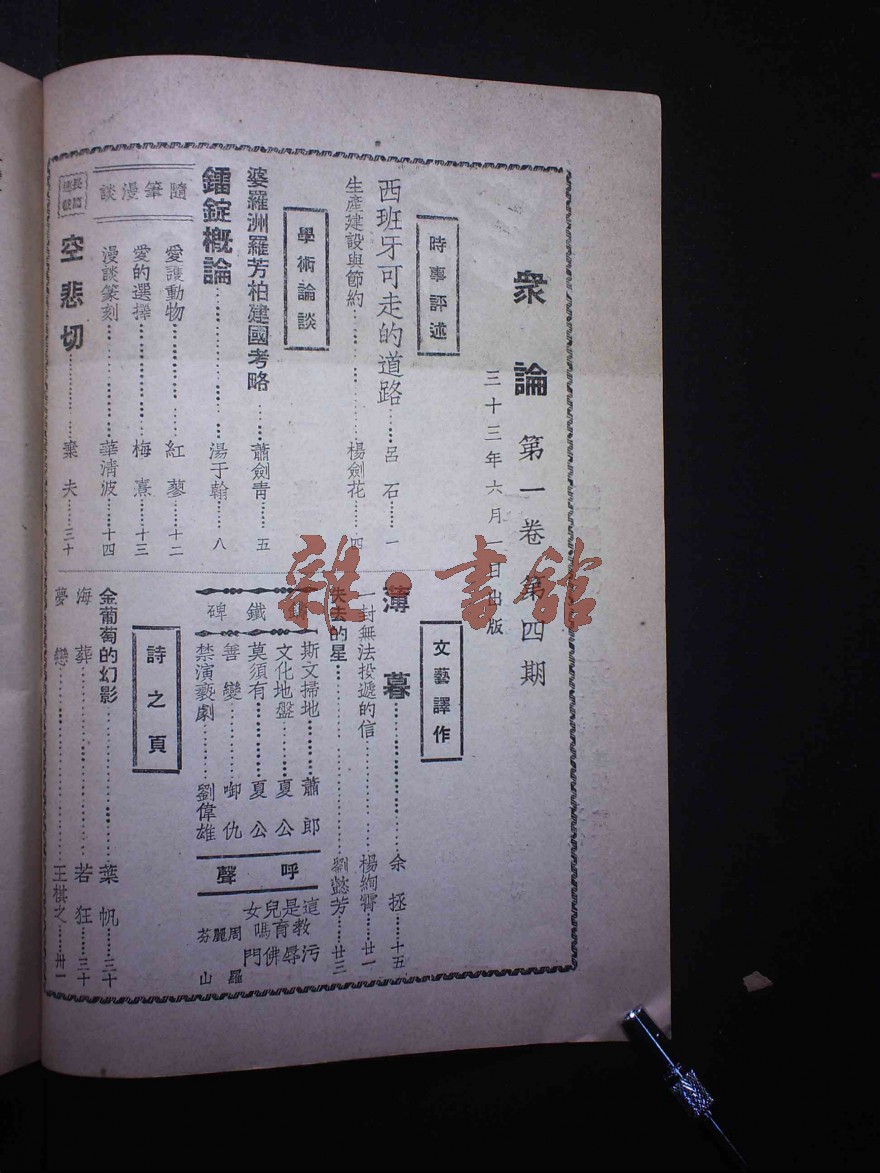 衆論 第一卷 第四期
三十三年六月一日出版
時事評述
西班牙可走的道路……呂石……一
生產建設與節約……楊劍花……四
學術論談
婆羅洲羅芳柏建國考略……蕭劍青……五
鐳錠概論……湯于翰……八
隨筆漫談
愛護動物……紅蓼……十二
愛的選擇……梅熹……十三
漫談篆刻……華清波……十四
長篇連載
空悲切……棄夫……三十
文藝譯作
薄暮……余拯……十五
一封無法投遞的信……楊絢霄……廿一
失去的星……劉懿芳……廿三
鐵碑
斯文掃地……蕭郎
文化地盤……夏公
莫須有……夏公
善變……啣仇
禁演褻劇……劉偉雄
呼聲
這是兒女
教育嗎 周麗芬
污辱佛門 羅山
詩之頁
金葡萄的幻影……葉帆……三十
海葬……若狂……三十
夢戀……王棋之……卅一
雜·書館